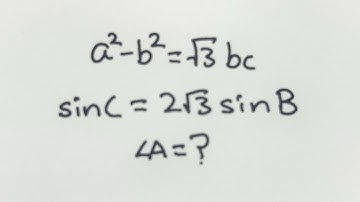 a²-b²=√3 bc
sinC = 2√3 sinB
∠A=?